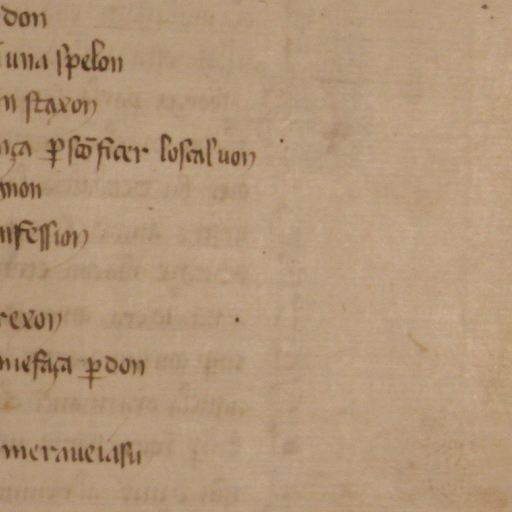 don
una spelon
n staxon
ça ꝑ scõ ficer lo scaluon
mon
nfession
rexon
me faça ꝑdon
meraueiasu